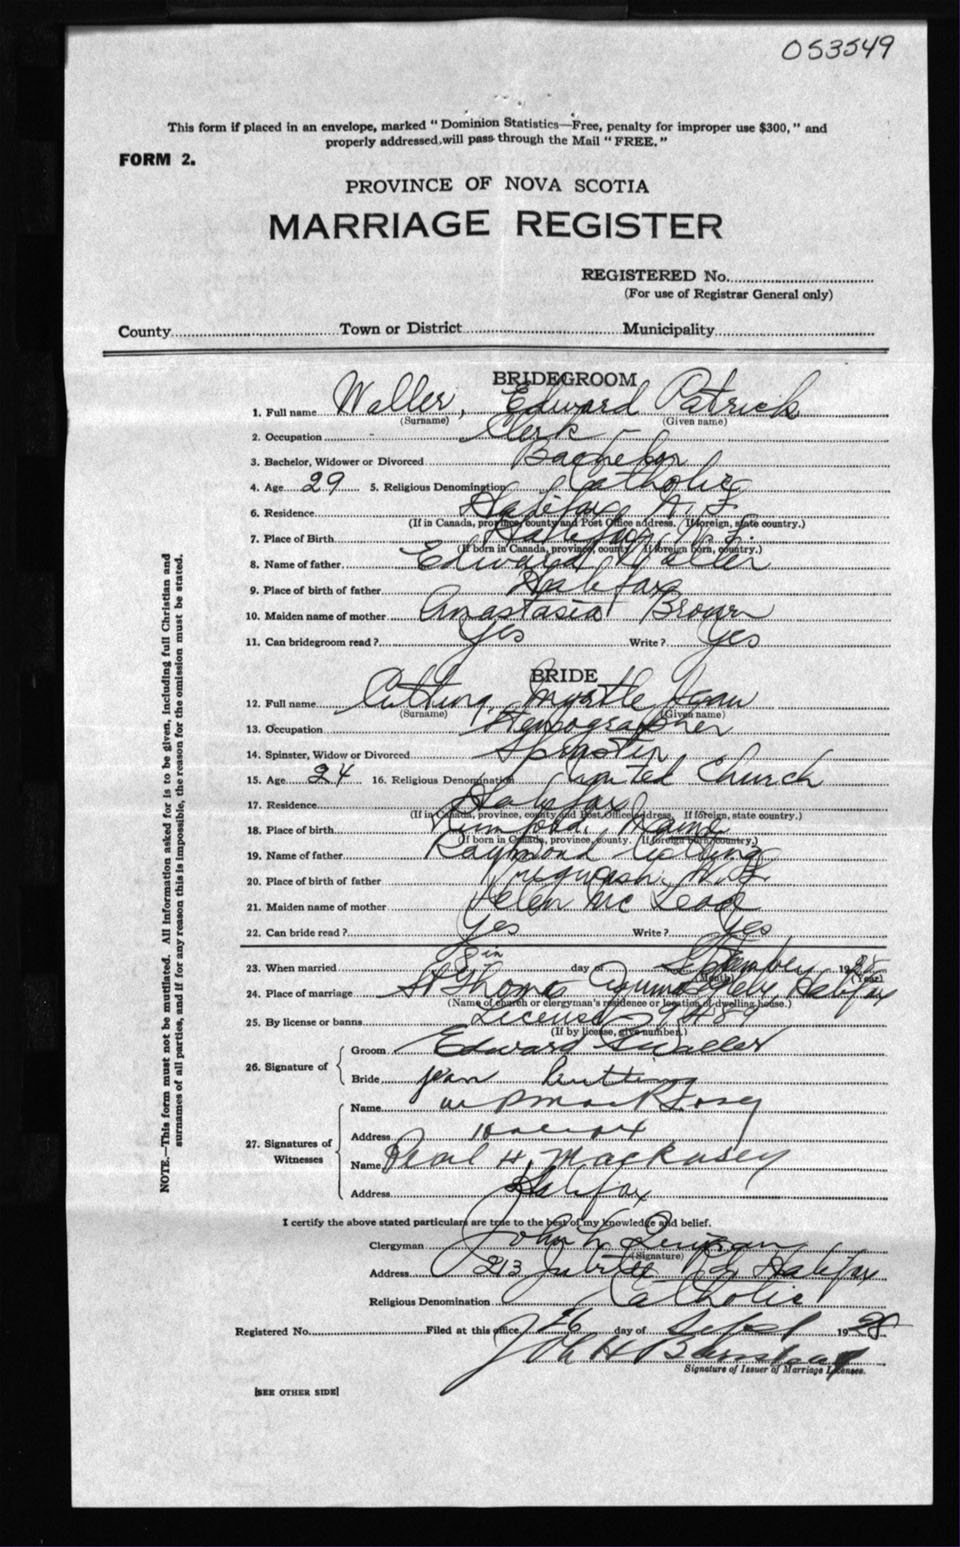 053549
This form if placed in an envelope, marked "Dominion Statistics—Free, penalty for improper use $300," and
properly addressed, will pass through the Mail "FREE."
FORM 2.
PROVINCE OF NOVA SCOTIA
MARRIAGE REGISTER
REGISTERED No.
(For use of Registrar General only)
County Town or District Municipality
BRIDEGROOM
1. Full name Waller, Edward Patrick
(Surname) (Given name)
2. Occupation Clerk
3. Bachelor, Widower or Divorced Bachelor
4. Age 29 5. Religious Denomination Catholic
6. Residence Halifax N.S.
(If in Canada, province, county and Post Office address. If foreign, state country.)
7. Place of Birth Halifax, N.S.
(If born in Canada, province, county. If foreign born, country.)
8. Name of father Edward Waller
9. Place of birth of father Halifax
10. Maiden name of mother Anastasia Brown
11. Can bridegroom read? Yes Write? Yes
BRIDE
12. Full name Cutting, Myrtle Jean
(Surname) (Given name)
13. Occupation Stenographer
14. Spinster, Widow or Divorced Spinster
15. Age 24 16. Religious Denomination United Church
17. Residence Halifax
(If in Canada, province, county and Post Office address. If foreign, state country.)
18. Place of birth Rumford, Maine
(If born in Canada, province, county. If foreign born, country.)
19. Name of father Raymond Cutting
20. Place of birth of father N.S.
21. Maiden name of mother Helen Mc Leod
22. Can bride read? Yes Write? Yes
23. When married day of September 1928
(Month) (Year)
24. Place of marriage St Thomas Halifax
(Name of church or clergyman's residence or location of dwelling house.)
25. By license or banns License 9489
(If by license, give number.)
26. Signature of Groom Edward P Waller
Bride Jean Cutting
27. Signatures of Witnesses
Name
Address Halifax
Name Pearl H. MacKasey
Address Halifax
I certify the above stated particulars are true to the best of my knowledge and belief.
Clergyman John L.
(Signature)
Address 213 Jubilee Rd, Halifax
Religious Denomination Catholic
Registered No. Filed at this office 26 day of Sept 1928
John H
Signature of Issuer of Marriage Licenses.
[SEE OTHER SIDE]
NOTE.—This form must not be mutilated. All information asked for is to be given, including full Christian and
surnames of all parties, and if for any reason this is impossible, the reason for the omission must be stated.